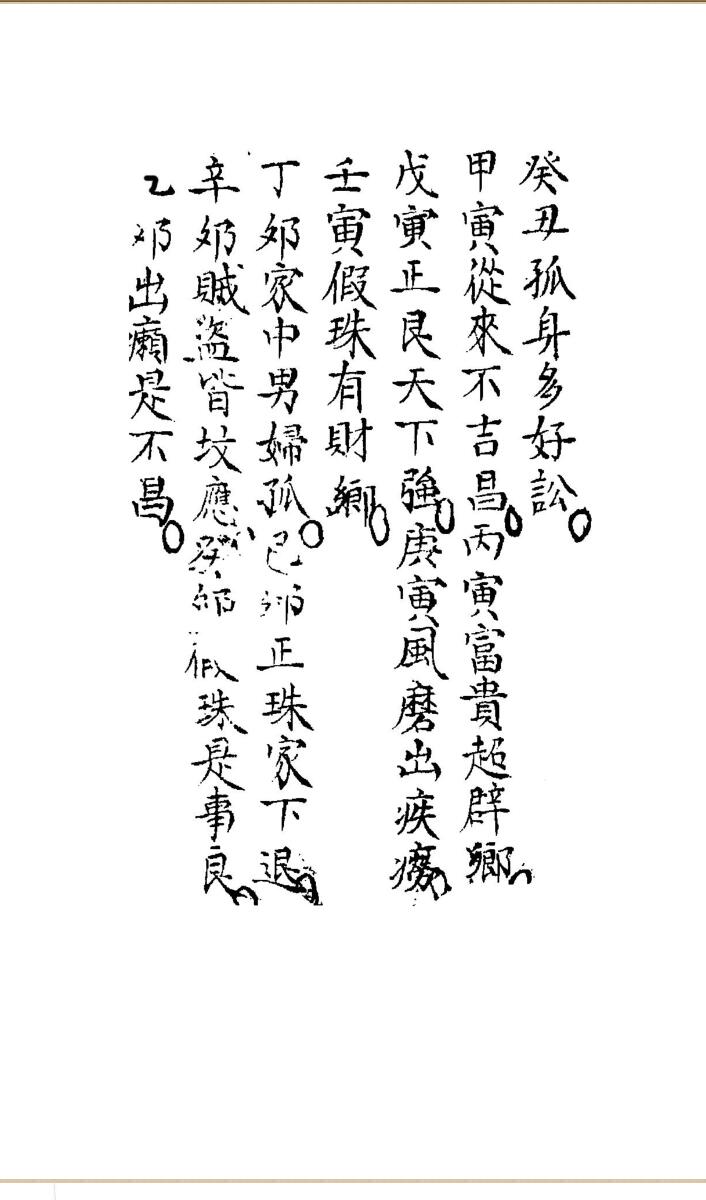 癸丑孤身多好訟○
甲寅從來不吉昌○丙寅富貴超辟鄉○
戊寅正艮天下強○庚寅風磨出疾癆○
壬寅假珠有財鄉○
丁夘家中男婦孤○己夘正珠家下退○
辛夘賊盜皆坟應癸夘假珠是事良○
乙夘出癩是不昌○